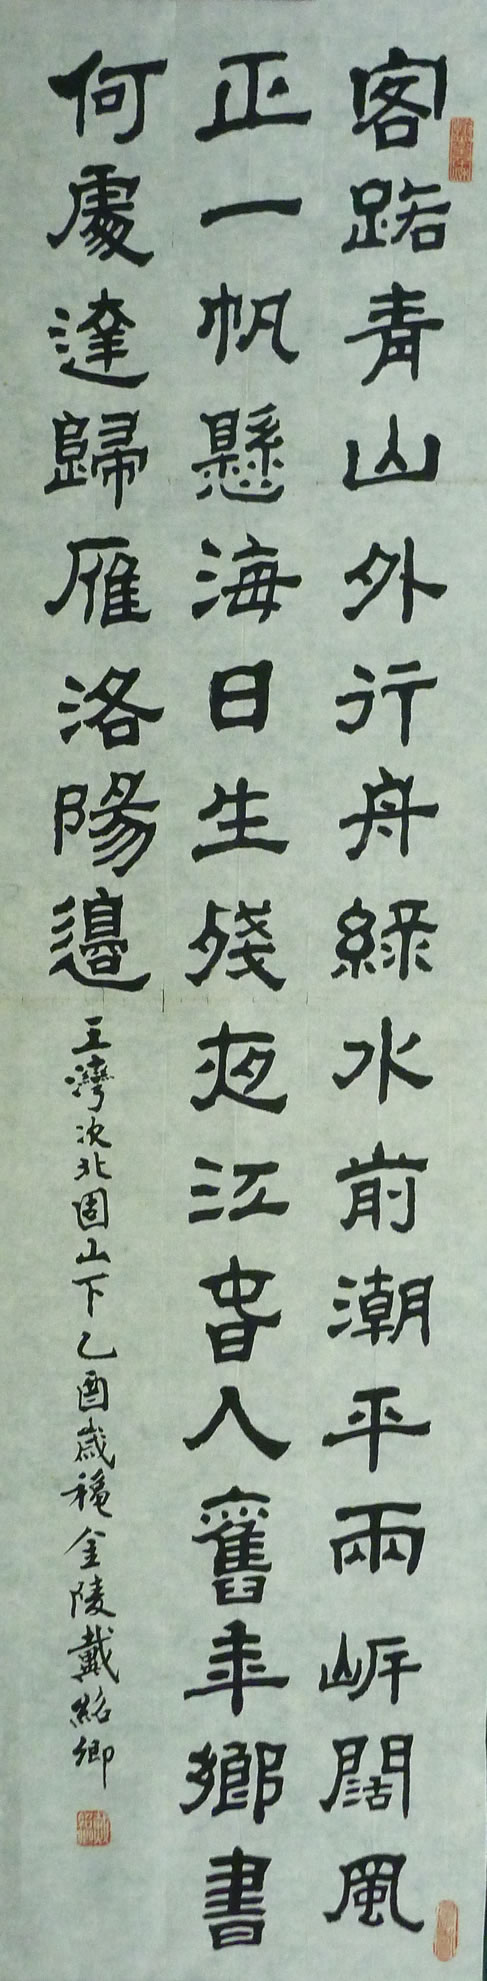 客路青山外行舟綠水前潮平兩岸闊風
正一帆懸海日生殘夜江春入舊年鄉書
何處達歸雁洛陽邊
王灣次北固山下乙酉歲秋金陵戴紹卿